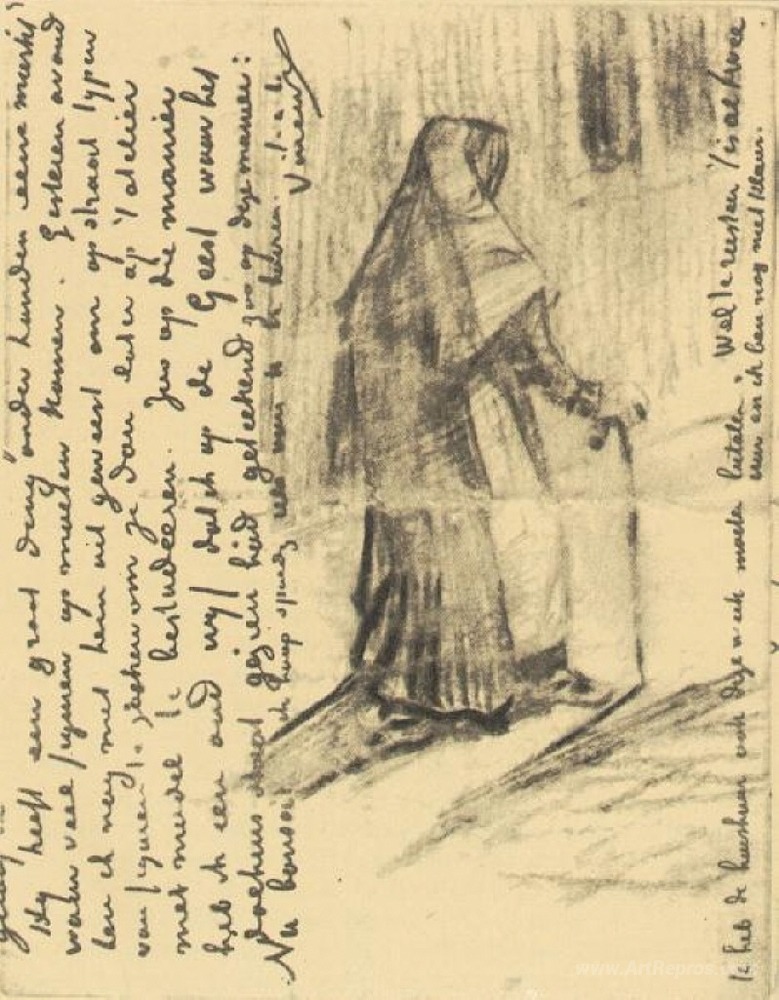 Hij heeft een groot ding onder handen eene
waar veel figuren op moeten komen. Gisteren avond
ben ik nog met hem uit geweest om op straat typen
van figuren te zoeken om ze dan later op 't atelier
met model te bestudeeren. Zoo op die manier
heb ik een oud wijf dat ik op de Geest waar het
dolhuis staat gezien geteekend zoo op deze manier:
Nu bonsoir ik hoop spoedig iets van u te hooren. t. à t.
Vincent
Ik heb de huishuur ook deze week moeten betalen. Wel te rusten 't is al twee
uur en ik ben nog niet klaar.
www.ArtRepros.com